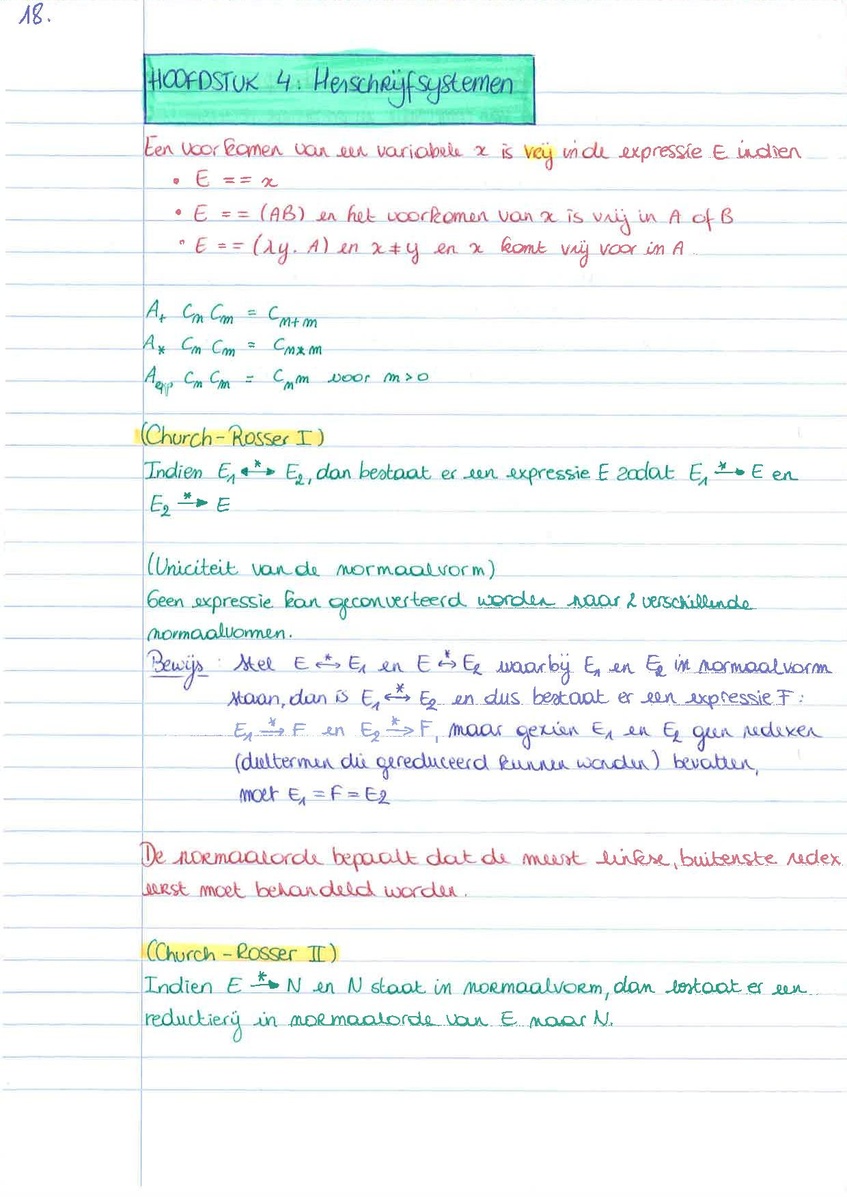 18.
HOOFDSTUK 4: Herschrijfsystemen
Een voorkomen van een variabele x is vrij in de expressie E indien
• E == x
• E == (AB) en het voorkomen van x is vrij in A of B
• E == (λy. A) en x ≠ y en x komt vrij voor in A
A₊ Cₙ Cₘ = Cₙ₊ₘ
A* Cₙ Cₘ = Cₙ*ₘ
A_exp Cₙ Cₘ = C_n^m voor m > 0
(Church-Rosser I)
Indien E₁ <-*-> E₂, dan bestaat er een expressie E zodat E₁ -*-> E en
E₂ -*-> E
(Uniciteit van de normaalvorm)
Geen expressie kan geconverteerd worden naar 2 verschillende
normaalvormen.
Bewijs: Stel E <-*-> E₁ en E <-*-> E₂ waarbij E₁ en E₂ in normaalvorm
staan, dan is E₁ <-*-> E₂ en dus bestaat er een expressie F:
E₁ -*-> F en E₂ -*-> F, maar gezien E₁ en E₂ geen redexen
(deeltermen die gereduceerd kunnen worden) bevatten,
moet E₁ = F = E₂
De normaalorde bepaalt dat de meest linkse, buitenste redex
eerst moet behandeld worden.
(Church-Rosser II)
Indien E -*-> N en N staat in normaalvorm, dan bestaat er een
reductierij in normaalorde van E naar N.